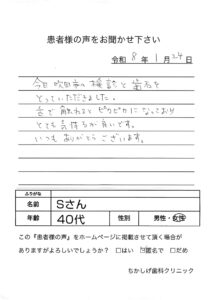 患者様の声をお聞かせ下さい
令和 8 年 1 月 24 日
今日 吹田市の検診と歯石を
とっていただきました。
舌で触れると ピカピカになっており
とても気持ちが良いです。
いつもありがとうございます。
ふりがな
名前 Sさん
年齢 40代 性別 男性・女性
この『患者様の声』をホームページに掲載させて頂く場合が
ありますがよろしいでしょうか？ □はい ☑匿名で □だめ
ちかしげ歯科クリニック